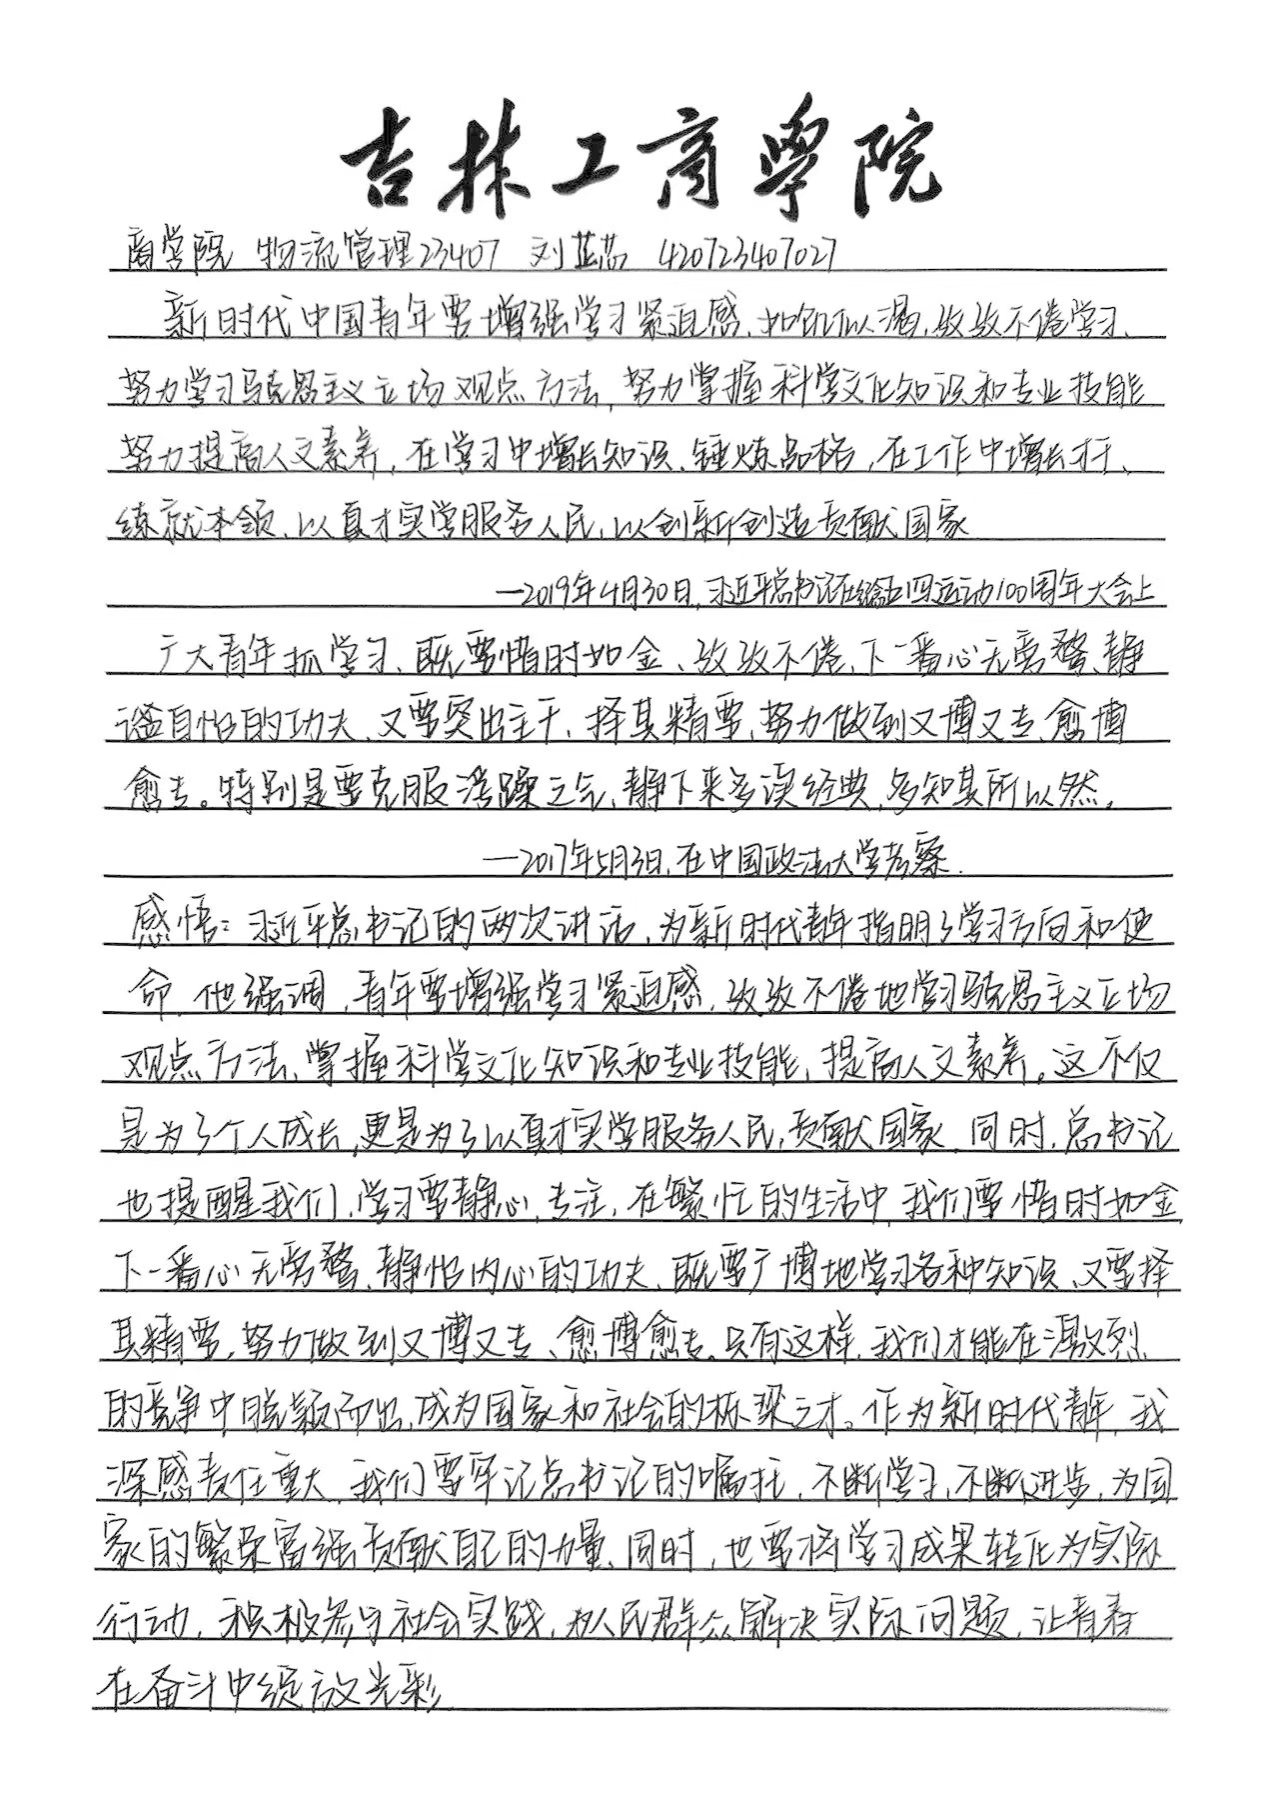 吉林工商學院
商学院 物流管理23407 刘蓝芯 420723407027
新时代中国青年要增强学习紧迫感、如饥似渴、孜孜不倦学习、
努力学习马克思主义立场观点方法，努力掌握科学文化知识和专业技能
努力提高人文素养，在学习中增长知识、锤炼品格，在工作中增长才干、
练就本领、以真才实学服务人民，以创新创造贡献国家
—2019年4月30日，习近平总书记在纪念五四运动100周年大会上
广大青年抓学习、既要惜时如金、孜孜不倦、下一番心无旁骛、静
谧自怡的功夫、又要突出主干、择其精要，努力做到又博又专、愈博
愈专。特别是要克服浮躁之气，静下来多读经典，多知其所以然。
—2017年5月3日，在中国政法大学考察.
感悟：习近平总书记的两次讲话，为新时代青年指明了学习方向和使
命 他强调，青年要增强学习紧迫感，孜孜不倦地学习马克思主义立场
观点方法、掌握科学文化知识和专业技能，提高人文素养。这不仅
是为了个人成长，更是为了以真才实学服务人民，贡献国家 同时，总书记
也提醒我们，学习要静心，专注，在繁忙的生活中，我们要惜时如金，
下一番心无旁骛、静怡内心的功夫、既要广博地学习各种知识、又要择
其精要，努力做到又博又专、愈博愈专。只有这样，我们才能在激烈
的竞争中脱颖而出，成为国家和社会的栋梁之才。作为新时代青年，我
深感责任重大，我们要牢记总书记的嘱托，不断学习，不断进步，为国
家的繁荣富强贡献自己的力量，同时，也要将学习成果转化为实际
行动，积极参与社会实践，为人民群众解决实际问题，让青春
在奋斗中绽放光彩